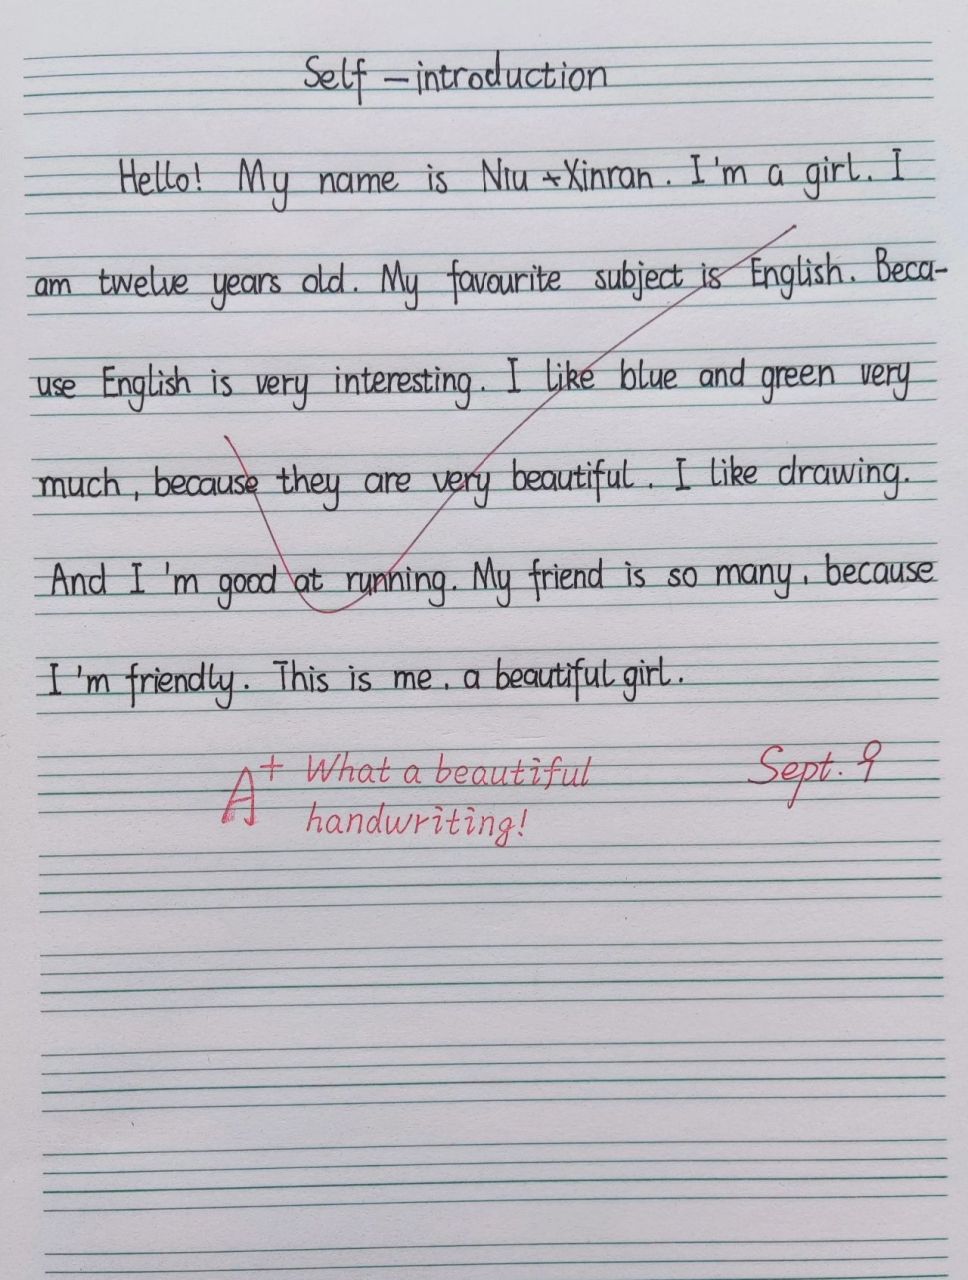 Self-introduction
Hello! My name is Niu Xinran. I'm a girl. I
am twelve years old. My favourite subject is English. Beca-
use English is very interesting. I like blue and green very
much, because they are very beautiful. I like drawing.
And I'm good at running. My friend is so many, because
I'm friendly. This is me, a beautiful girl.
A+ What a beautiful Sept. 9
handwriting!